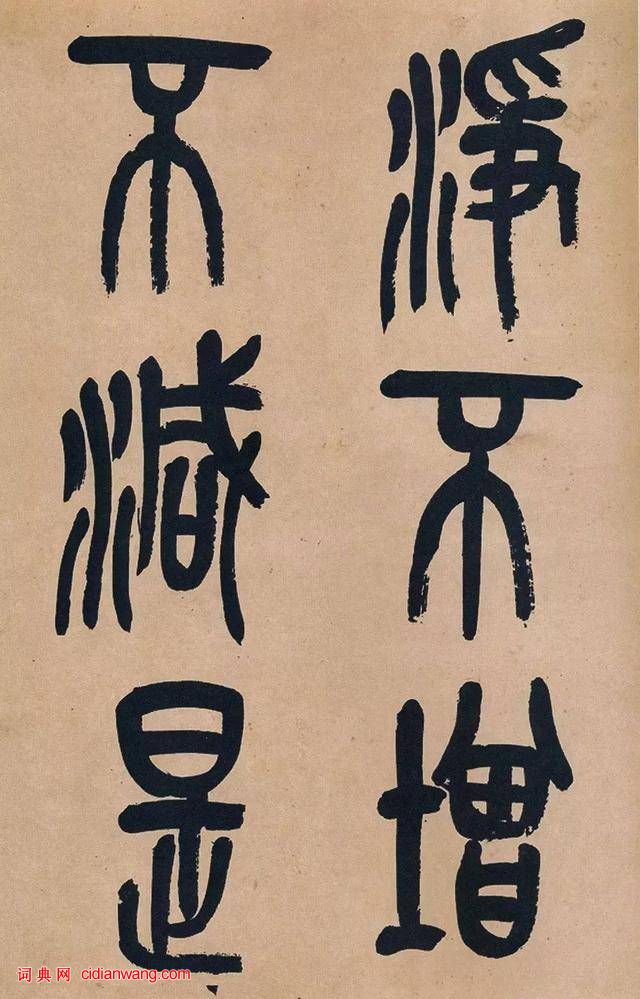 淨不增
不減是
词典网 cidianwang.com